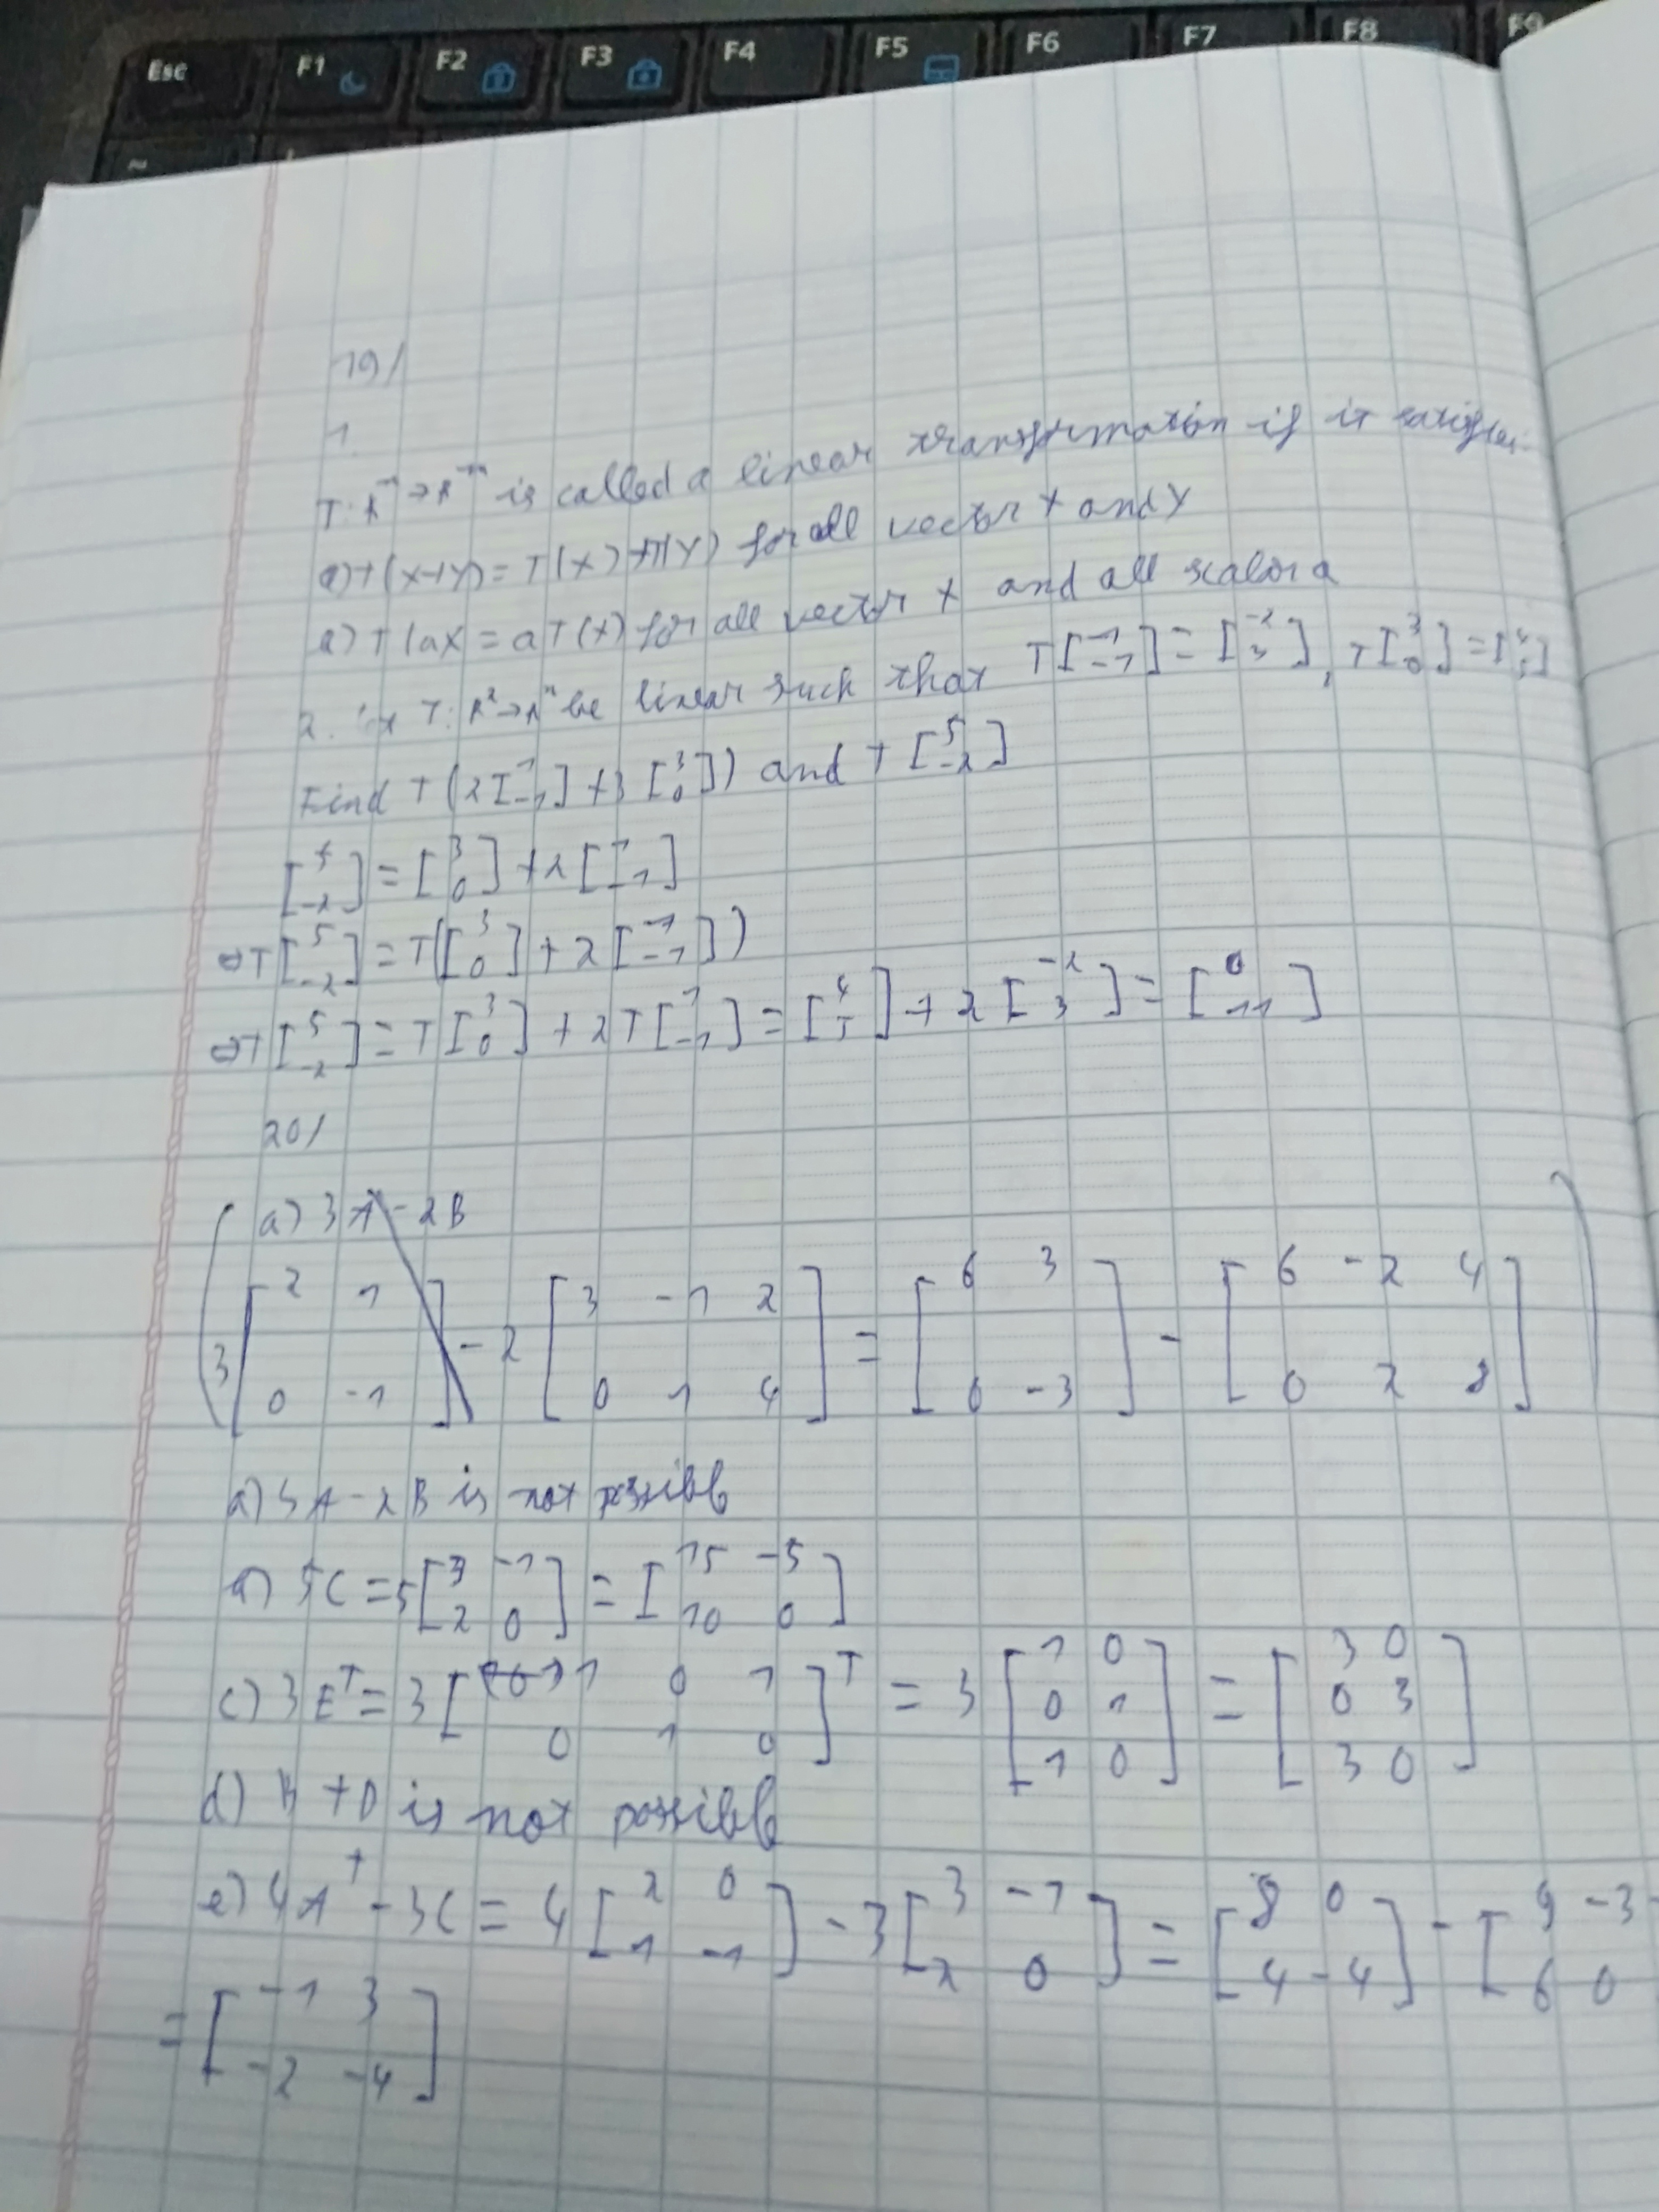 Esc F1 F2 F3 F4 F5 F6 F7 F8 F9
~
19/
1.
T: R^n → R^m is called a linear transformation if it satisfies:
a) T(X+Y) = T(X) + T(Y) for all vector X and Y
a) T(aX = aT(X) for all vector X and all scalar a
2. T: R^2 → R^n be linear such that T[1 -1] = [-2 3], T[3 0] = [4 5]
Find T(2[1 -1] + 3[3 0]) and T[5 -2]
[5 -2] = [3 0] + 2[1 -1]
⇔ T[5 -2] = T([3 0] + 2[1 -1])
⇔ T[5 -2] = T[3 0] + 2T[1 -1] = [4 5] + 2[-2 3] = [0 11]
20/
a) 3A - 2B
3[2 1
0 -1] - 2[3 -1 2
0 1 4] = [6 3
0 -3] - [6 -2 4
0 2 8]
a) 3A - 2B is not possible
5C = 5[3 -1
2 0] = [15 -5
10 0]
c) 3E^T = 3[1 0 1
0 1 0]^T = 3[1 0
0 1
1 0] = [3 0
0 3
3 0]
d) B + D is not possible
e) 4A^T - 3C = 4[2 0
1 -1] - 3[3 -1
2 0] = [8 0
4 -4] - [9 -3
6 0
= [-1 3
-2 -4]